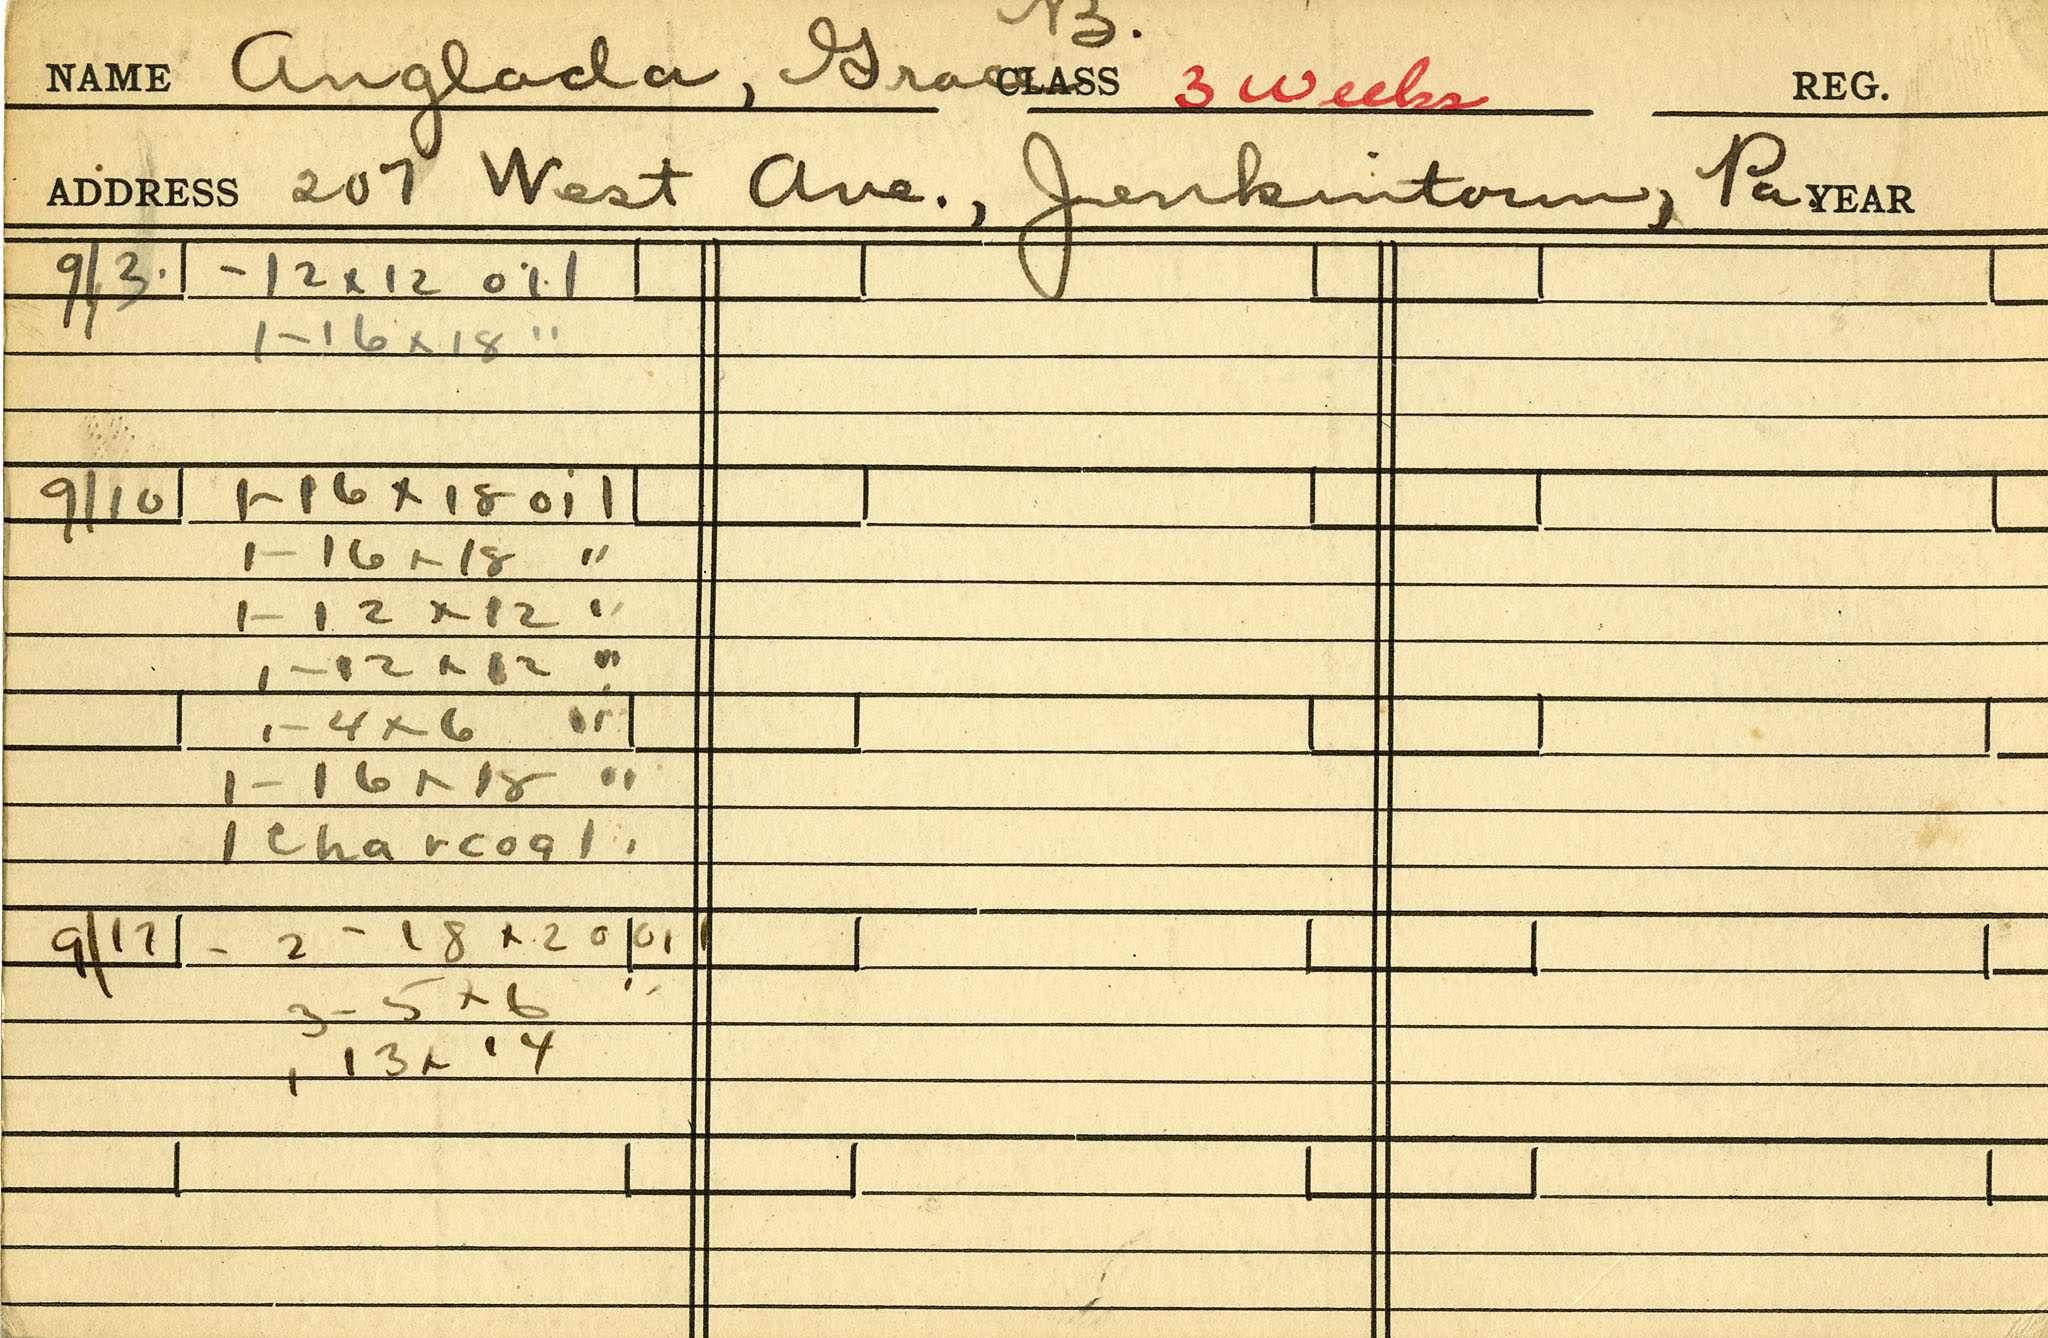 B.
NAME Anglada, Grace CLASS 3 Weeks REG.
ADDRESS 207 West Ave., Jenkintown, Pa. YEAR
9/3. - 12 x 12 oil
1 - 16 x 18 "
9/10 1 - 16 x 18 oil
1 - 16 x 18 "
1 - 12 x 12 "
1 - 12 x 12 "
1 - 4 x 6 "
1 - 16 x 18 "
1 Charcoal.
9/17 - 2 - 18 x 20 oil
3 - 5 x 6 "
1 13 x 14